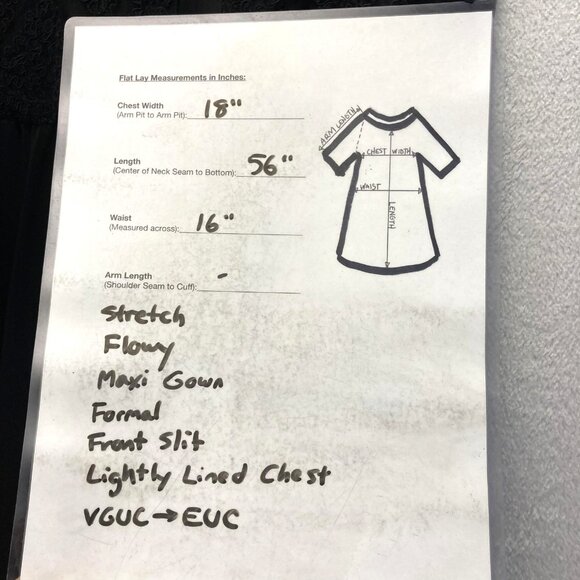 Flat Lay Measurements in Inches:
Chest Width
(Arm Pit to Arm Pit): 18"
Length
(Center of Neck Seam to Bottom): 56"
Waist
(Measured across): 16"
Arm Length
(Shoulder Seam to Cuff): -
ARM LENGTH
CHEST WIDTH
WAIST
LENGTH
Stretch
Flowy
Maxi Gown
Formal
Front Slit
Lightly Lined Chest
VGUC→EUC